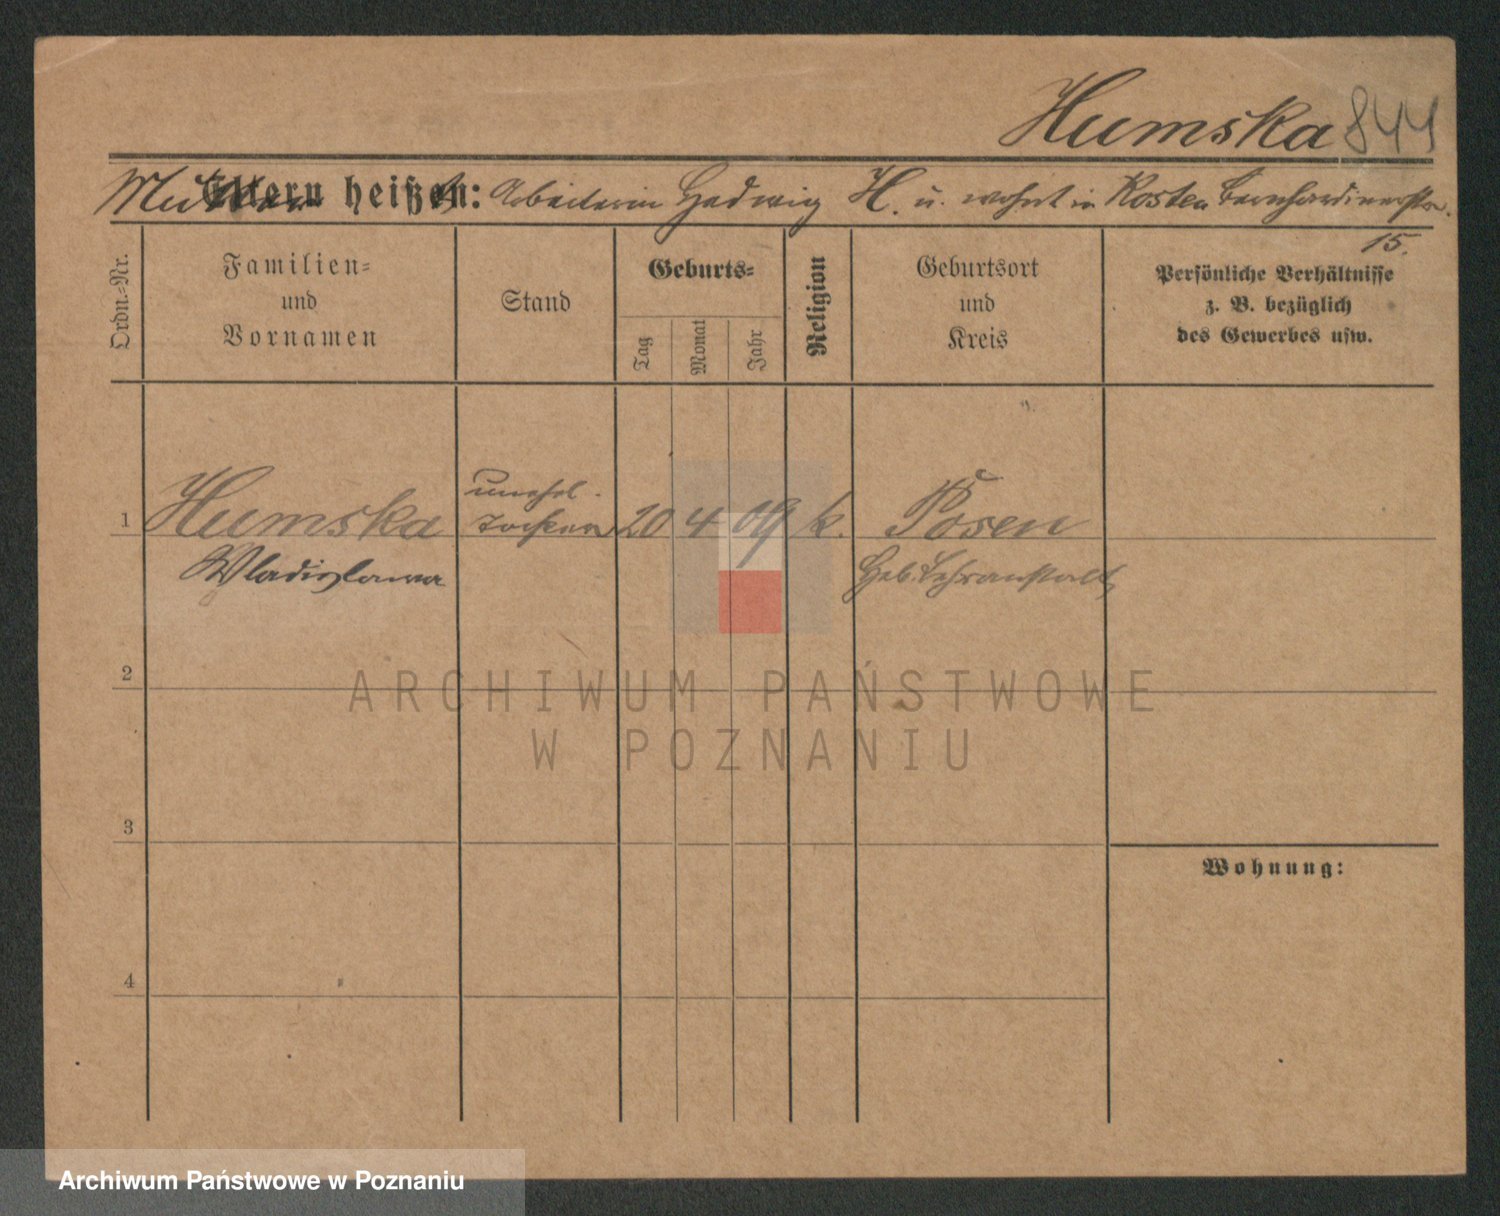 Humska 844
Mutter heißt: Arbeiterin Hedwig H. u. wohnt in Kosten Bernhardinerstr.
15.
Ordn.-Nr.
Familien-
und
Vornamen
Stand
Geburts-
Tag
Monat
Jahr
Religion
Geburtsort
und
Kreis
Persönliche Verhältnisse
z. B. bezüglich
des Gewerbes usw.
unehel.
1 Humska Tochter 20 4 09 k. Posen
Wladislawa Heb. Lehranstalt
2
ARCHIWUM PAŃSTWOWE
W POZNANIU
3
Wohnung:
4
Archiwum Państwowe w Poznaniu